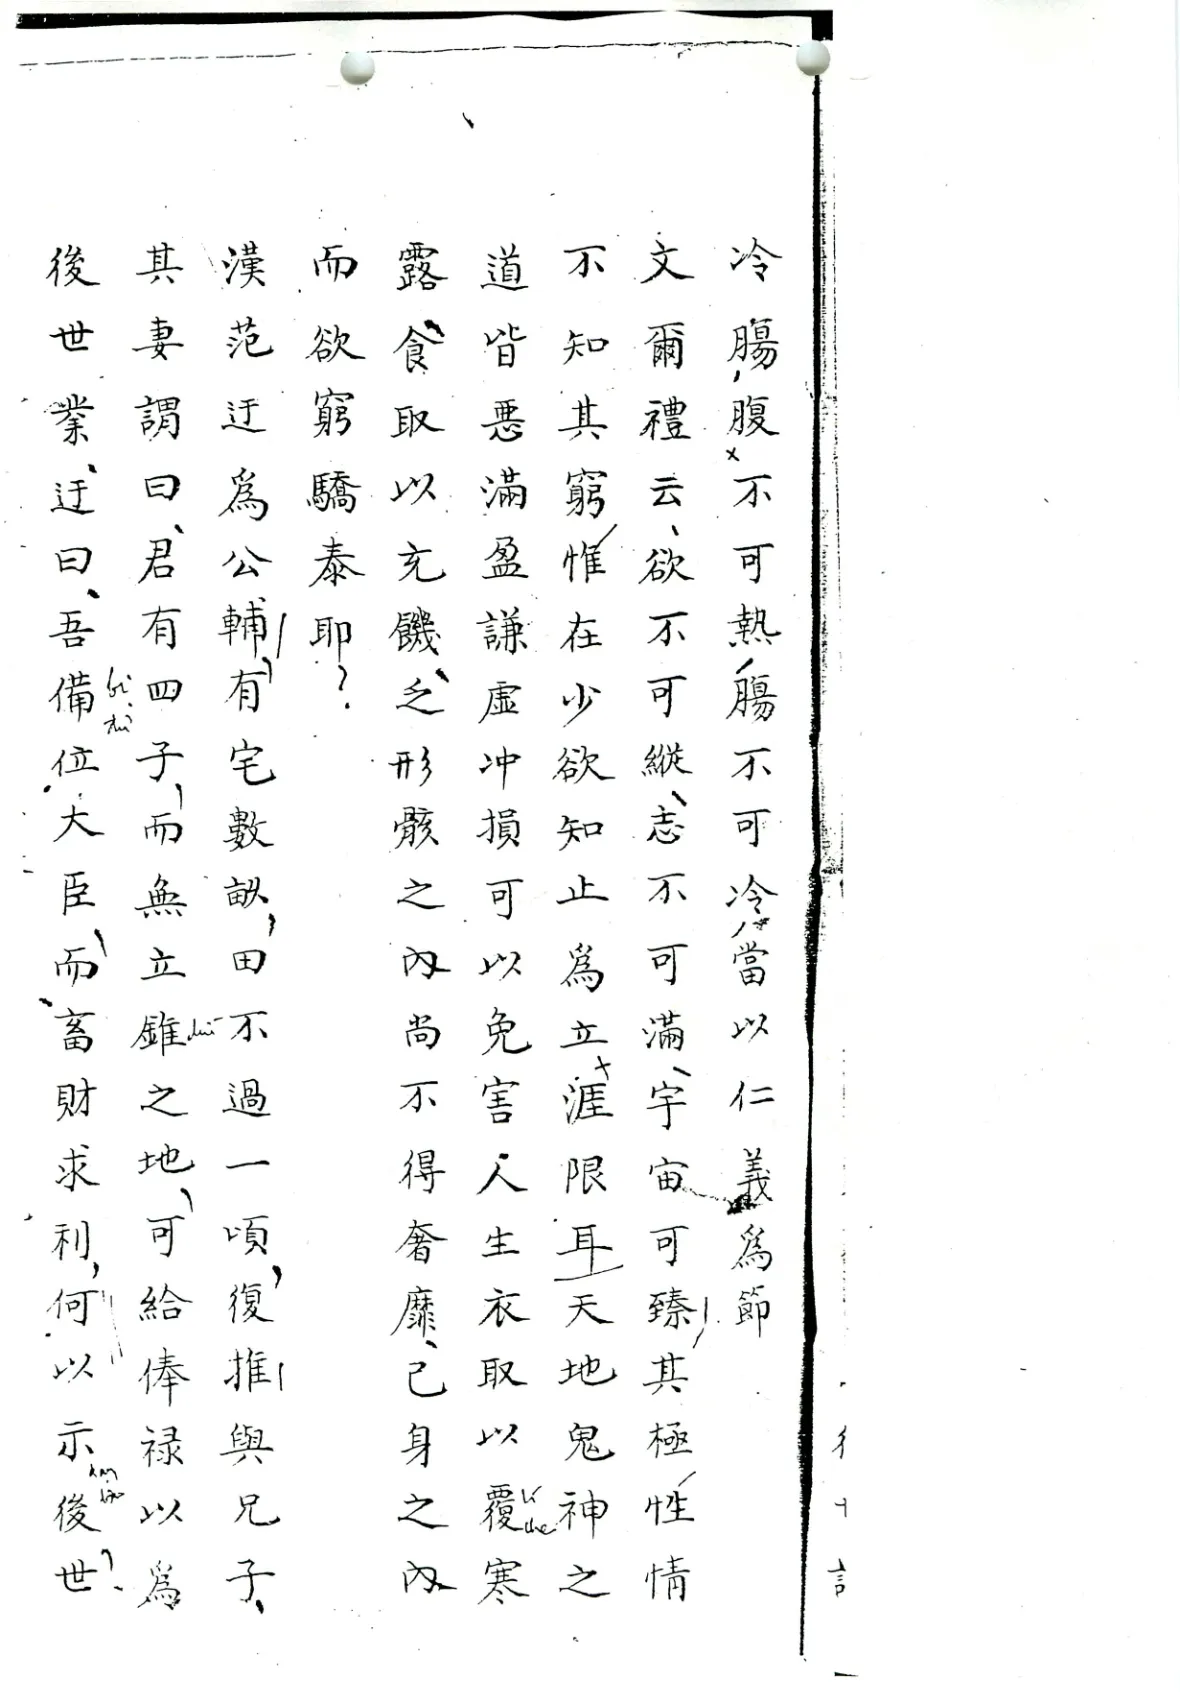 冷腸,腹不可熱,腸不可冷,當以仁義爲節
文爾禮云、欲不可縱、志不可滿、宇宙可臻,其極性情
不知其窮惟在少欲知止爲立涯限耳天地鬼神之
道皆惡滿盈謙虛冲損可以免害人生衣取以覆寒
露、食取以充饑、乏形骸之內尚不得奢靡、己身之內
而欲窮驕泰耶?
漢范迂爲公輔,有宅數畝,田不過一頃,復推與兄子、
其妻謂曰、君有四子,而無立錐之地,可給俸禄以爲
後世業、迂曰、吾備位大臣而、畜財求利,何以示後世?